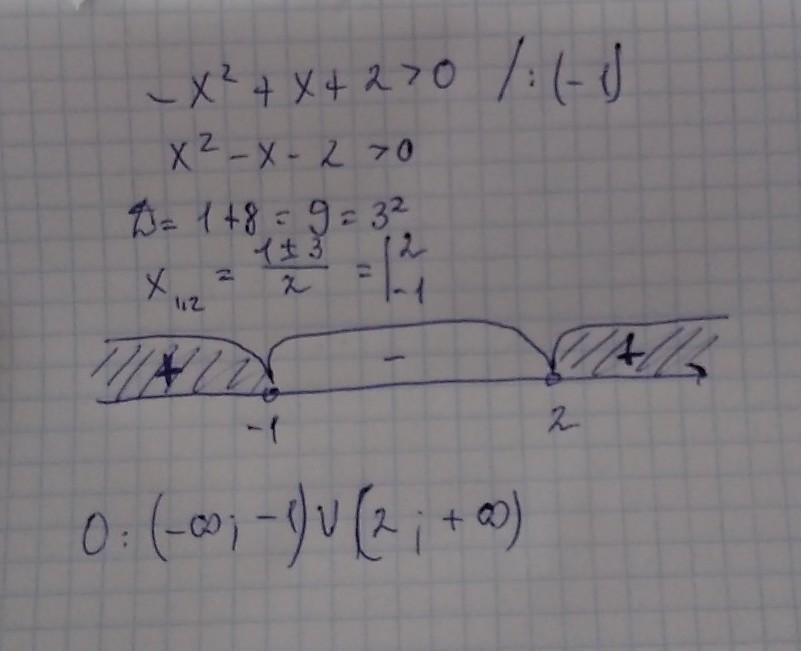 -x² + x + 2 > 0 /:(-1)
x² - x - 2 > 0
D = 1+8 = 9 = 3²
x₁,₂ = (1 ± 3)/2 = | 2 -1
+ - +
-1 2
O: (-∞; -1) ∪ (2; +∞)